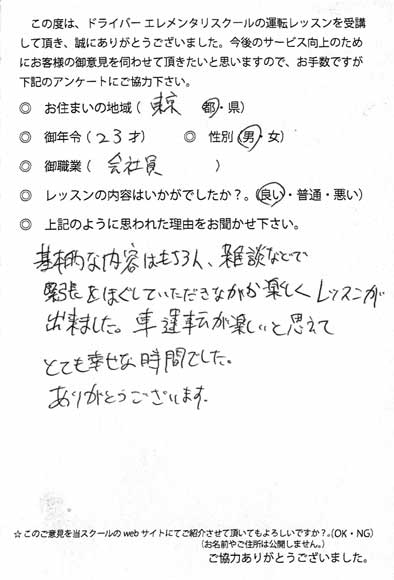 この度は、ドライバー エレメンタリスクールの運転レッスンを受講
して頂き、誠にありがとうございました。今後のサービス向上のため
にお客様の御意見を伺わせて頂きたいと思いますので、お手数ですが
下記のアンケートにご協力下さい。
◎ お住まいの地域( 東京 都・県)
◎ 御年令(23才) ◎ 性別(男・女)
◎ 御職業( 会社員 )
◎ レッスンの内容はいかがでしたか?。(良い・普通・悪い)
◎ 上記のように思われた理由をお聞かせ下さい。
基本的な内容はもちろん、雑談などで
緊張をほぐしていただきながら楽しくレッスンが
出来ました。車運転が楽しいと思えて
とても幸せな時間でした。
ありがとうございます.
☆このご意見を当スクールの web サイトにてご紹介させて頂いてもよろしいですか?。(OK・NG)
(お名前やご住所は公開しません。)
ご協力ありがとうございました。